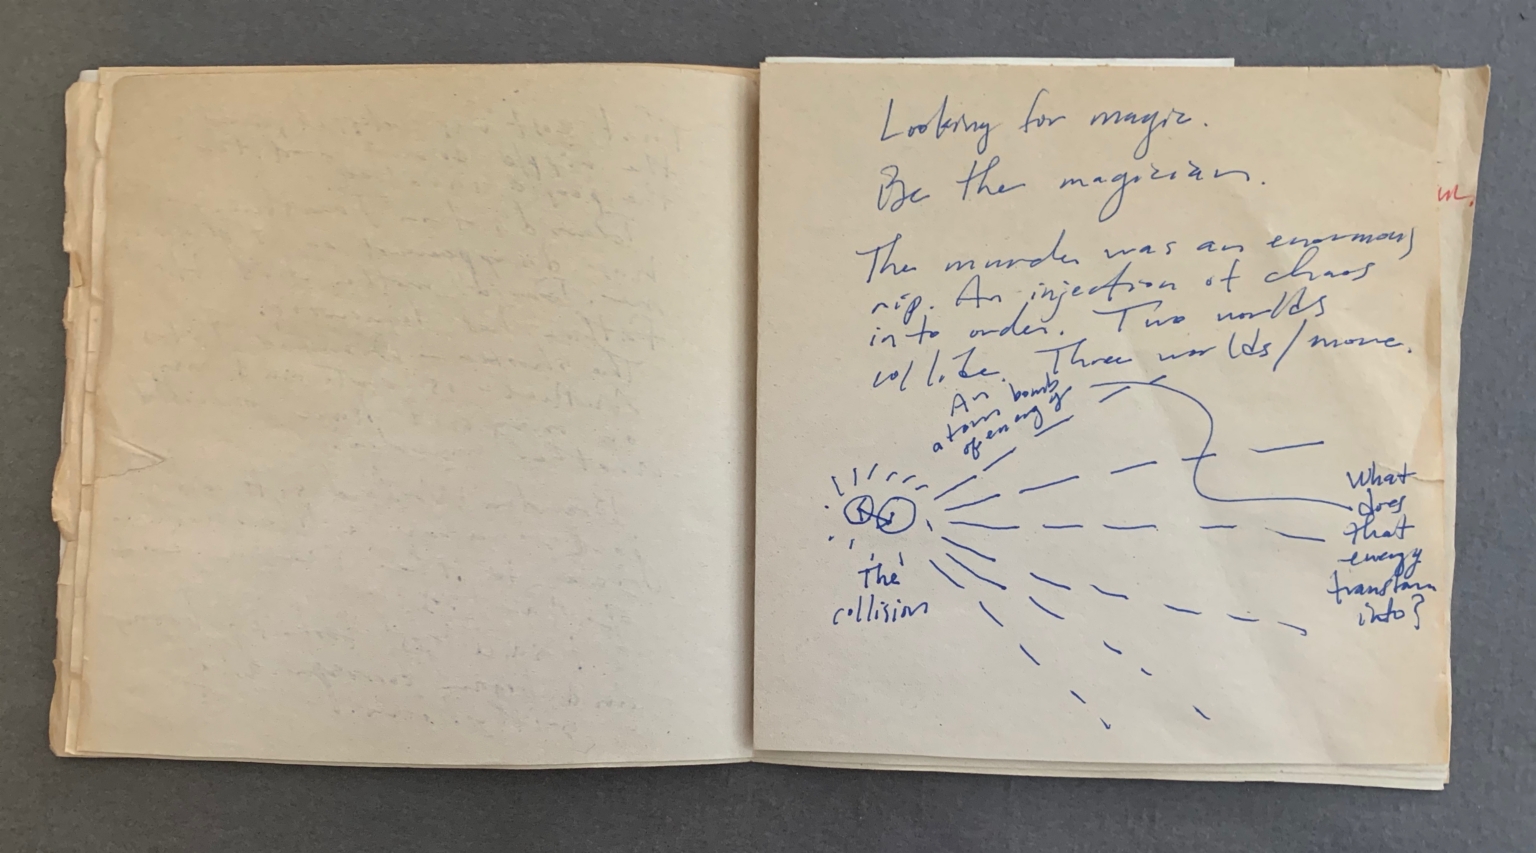 Looking for magic.
Be the magician.
The murder was an enormous
rip. An injection of chaos
into order. Two worlds
collide. Three worlds/more.
An
atom bomb
of energy
The
collision
What
does
that
energy
transform
into?
m.